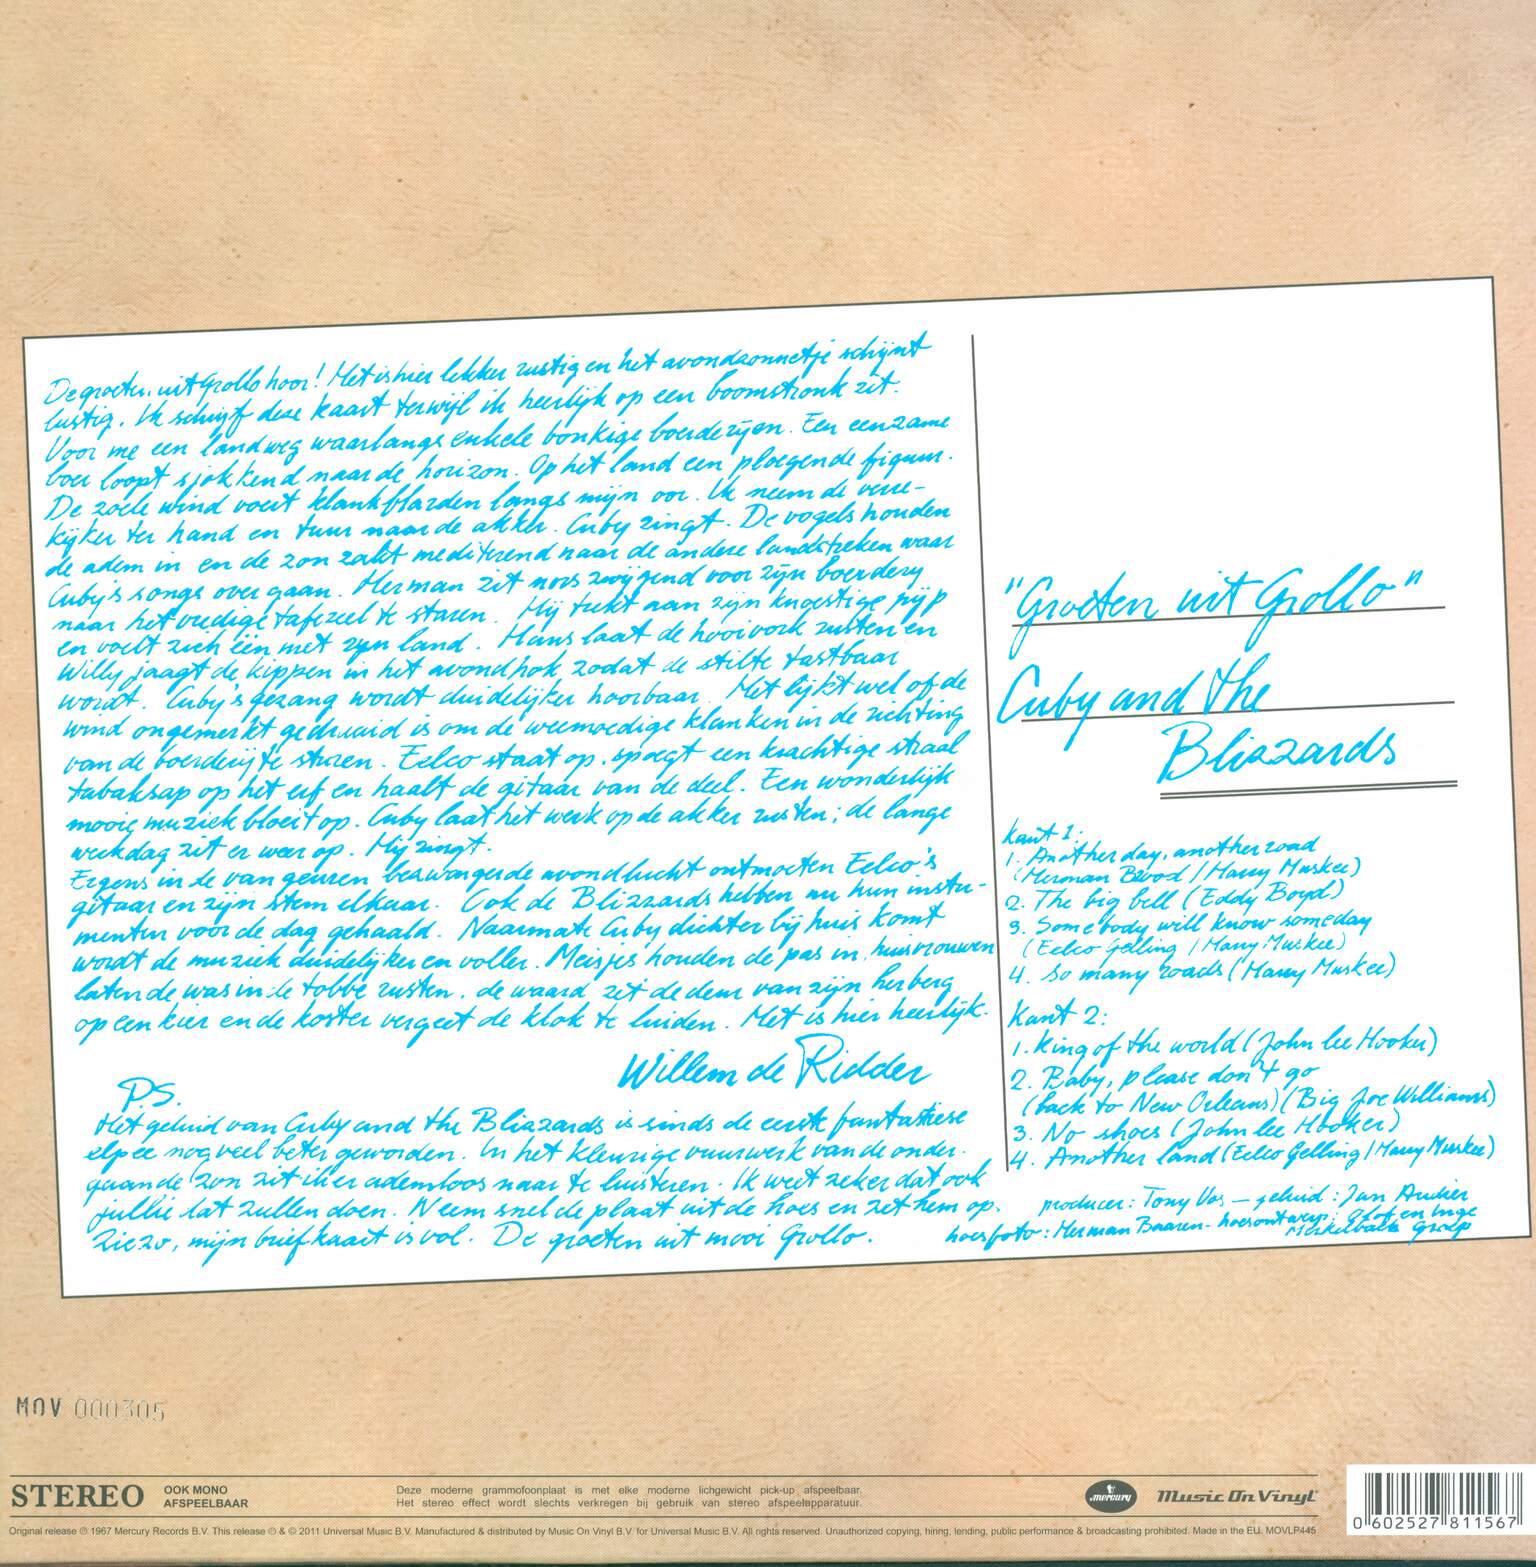 De groeten uit Grollo hoor! Het is hier lekker rustig en het avondzonnetje schijnt
lustig. Ik schrijf deze kaart terwijl ik heerlijk op een boomstronk zit.
Voor me een landweg waarlangs enkele bonkige boerderijen. Een eenzame
boer loopt sjokkend naar de horizon. Op het land een ploegende figuur.
De zoele wind voert klankflarden langs mijn oor. Ik neem de verre-
kijker ter hand en tuur naar de akker. Cuby zingt. De vogels houden
de adem in en de zon zakt mediterend naar de andere landstreken waar
Cuby's songs over gaan. Herman zit nors zwijgend voor zijn boerderij
naar het vredige tafereel te staren. Hij trekt aan zijn knoestige pijp
en voelt zich één met zijn land. Hans laat de hooivork rusten en
Willy jaagt de kippen in het avondhok zodat de stilte tastbaar
wordt. Cuby's gezang wordt duidelijker hoorbaar. Het lijkt wel of de
wind ongemerkt gedraaid is om de weemoedige klanken in de richting
van de boerderij te sturen. Eelco staat op, spoegt een krachtige straal
tabaksap op het erf en haalt de gitaar van de deel. Een wonderlijk
mooie muziek bloeit op. Cuby laat het werk op de akker rusten; de lange
werkdag zit er weer op. Hij zingt.
Ergens in de van geuren bezwangerde avondlucht ontmoeten Eelco's
gitaar en zijn stem elkaar. Ook de Blizzards hebben nu hun instru-
menten voor de dag gehaald. Naarmate Cuby dichter bij huis komt
wordt de muziek duidelijker en voller. Meisjes houden de pas in, huisvrouwen
laten de was in de tobbe rusten, de waard zet de deur van zijn herberg
op een kier en de koster vergeet de klok te luiden. Het is hier heerlijk.
Willem de Ridder
PS.
Het geluid van Cuby and the Blizzards is sinds de eerste fantastiese
elpee nog veel beter geworden. In het kleurige vuurwerk van de onder-
gaande zon zit ik er ademloos naar te luisteren. Ik weet zeker dat ook
jullie dat zullen doen. Neem snel de plaat uit de hoes en zet hem op.
Ziezo, mijn briefkaart is vol. De groeten uit mooi Grollo.
"Groeten uit Grollo"
Cuby and the
Blizzards
Kant 1:
1. Another day, another road
(Herman Brood / Harry Muskee)
2. The big bell (Eddy Boyd)
3. Somebody will know someday
(Eelco Gelling / Harry Muskee)
4. So many roads (Harry Muskee)
Kant 2:
1. King of the world (John lee Hooker)
2. Baby, please don't go
(back to New Orleans) (Big Joe Williams)
3. No shoes (John lee Hooker)
4. Another land (Eelco Gelling / Harry Muskee)
producer: Tony Vos - geluid: Jan Audier
hoesfoto: Herman Baaren - hoesontwerp: Olof en Inge
Merkelbach groep
MOV 000305
STEREO
OOK MONO
AFSPEELBAAR
Deze moderne grammofoonplaat is met elke moderne lichgewicht pick-up afspeelbaar.
Het stereo effect wordt slechts verkregen bij gebruik van stereo afspeelapparatuur.
mercury
Music On Vinyl
Original release ℗ 1967 Mercury Records B.V. This release ℗ & © 2011 Universal Music B.V. Manufactured & distributed by Music On Vinyl B.V. for Universal Music B.V. All rights reserved. Unauthorized copying, hiring, lending, public performance & broadcasting prohibited. Made in the EU. MOVLP445
0 602527 811567